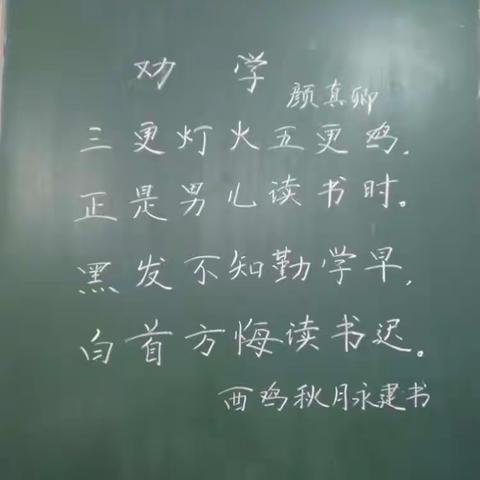 劝学
颜真卿
三更灯火五更鸡,
正是男儿读书时。
黑发不知勤学早,
白首方悔读书迟。
酉鸡秋月永建书